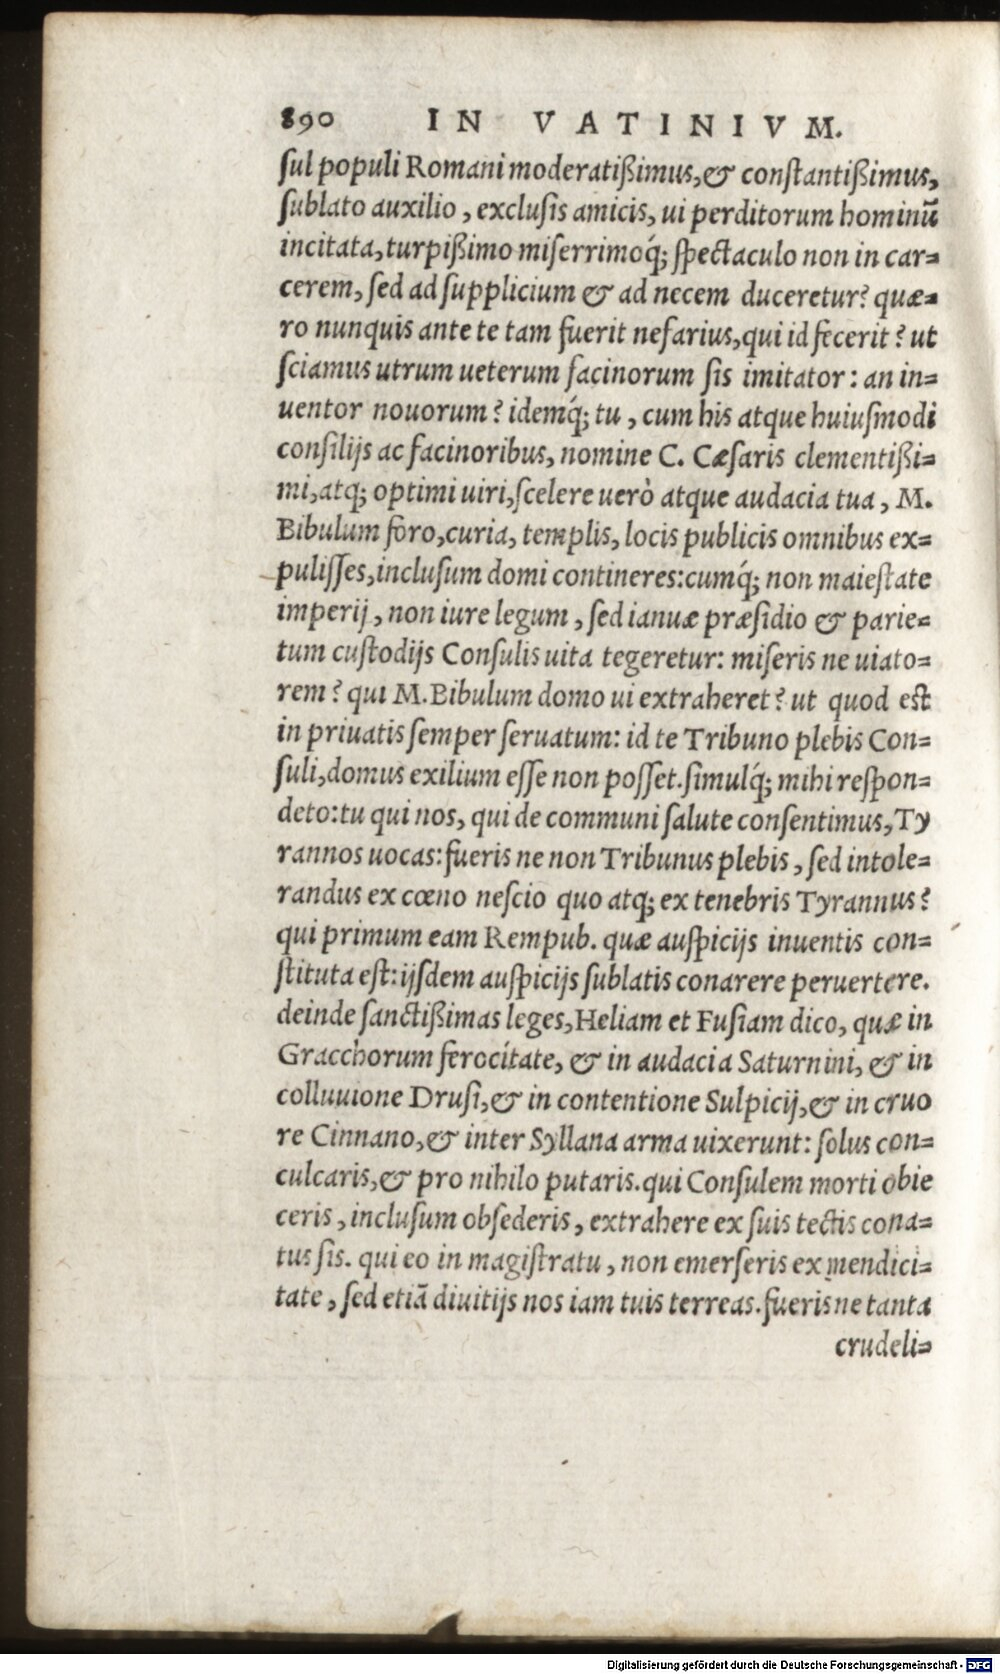 890 IN VATINIVM.
ſul populi Romani moderatißimus,& conſtantißimus,
ſublato auxilio, excluſis amicis, ui perditorum hominū
incitata,turpißimo miſerrimoq́; ſpectaculo non in car=
cerem, ſed ad ſupplicium & ad necem duceretur? quæ=
ro nunquis ante te tam fuerit nefarius,qui id fecerit? ut
ſciamus utrum ueterum facinorum ſis imitator: an in=
uentor nouorum? idemq́; tu, cum his atque huiuſmodi
conſilijs ac facinoribus, nomine C. Cæſaris clementißi=
mi,atq; optimi uiri,ſcelere uerò atque audacia tua, M.
Bibulum foro,curia, templis, locis publicis omnibus ex=
puliſſes,incluſum domi contineres:cumq́; non maieſtate
imperij, non iure legum, ſed ianuæ præſidio & parie=
tum cuſtodijs Conſulis uita tegeretur: miſeris ne uiato=
rem? qui M.Bibulum domo ui extraheret? ut quod eſt
in priuatis ſemper ſeruatum: id te Tribuno plebis Con=
ſuli,domus exilium eſſe non poſſet.ſimulq́; mihi reſpon=
deto:tu qui nos, qui de communi ſalute conſentimus,Ty
rannos uocas:fueris ne non Tribunus plebis, ſed intole=
randus ex cœno neſcio quo atq; ex tenebris Tyrannus?
qui primum eam Rempub. quæ auſpicijs inuentis con=
ſtituta eſt:ijſdem auſpicijs ſublatis conarere peruertere.
deinde ſanctißimas leges,Heliam et Fuſiam dico, quæ in
Gracchorum ferocitate, & in audacia Saturnini, & in
colluuione Druſi,& in contentione Sulpicij,& in cruo
re Cinnano,& inter Syllana arma uixerunt: ſolus con=
culcaris,& pro nihilo putaris.qui Conſulem morti obie
ceris, incluſum obſederis, extrahere ex ſuis tectis cona=
tus ſis. qui eo in magiſtratu, non emerſeris ex mendici=
tate, ſed etiā diuitijs nos iam tuis terreas.fueris ne tanta
crudeli=
Digitalisierung gefördert durch die Deutsche Forschungsgemeinschaft - DFG